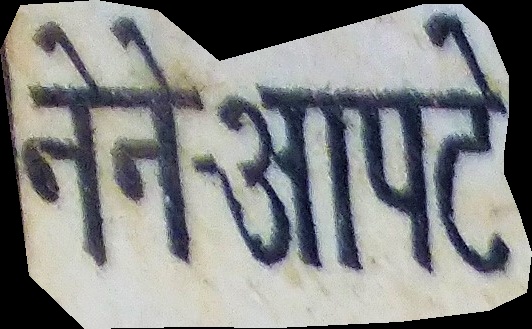 नेने आपटे